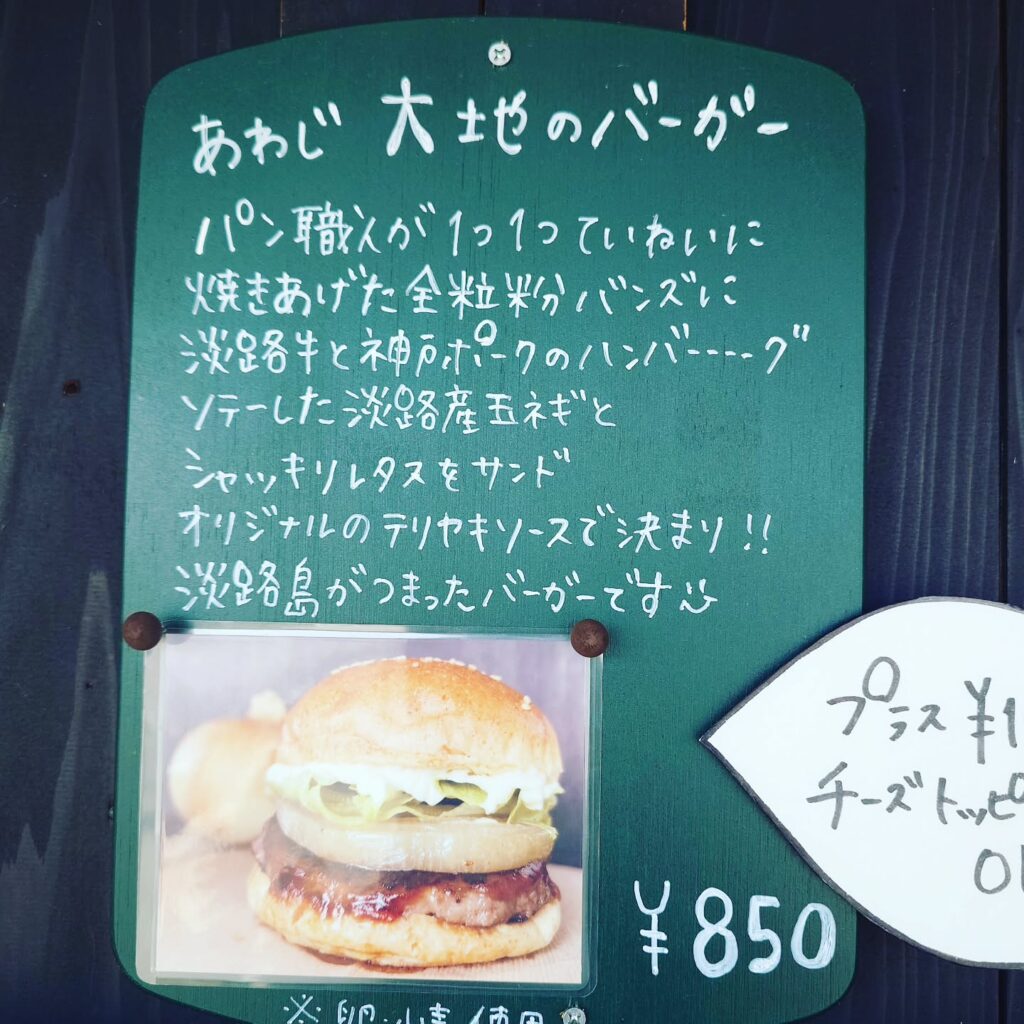 あわじ 大地のバーガー
パン職人が1つ1つていねいに
焼きあげた全粒粉バンズに
淡路牛と神戸ポークのハンバーーーーグ
ソテーした淡路産玉ネギと
シャッキリレタスをサンド
オリジナルのテリヤキソースで決まり!!
淡路島がつまったバーガーです
¥850
プラス¥1
チーズトッピ
※卵
使用